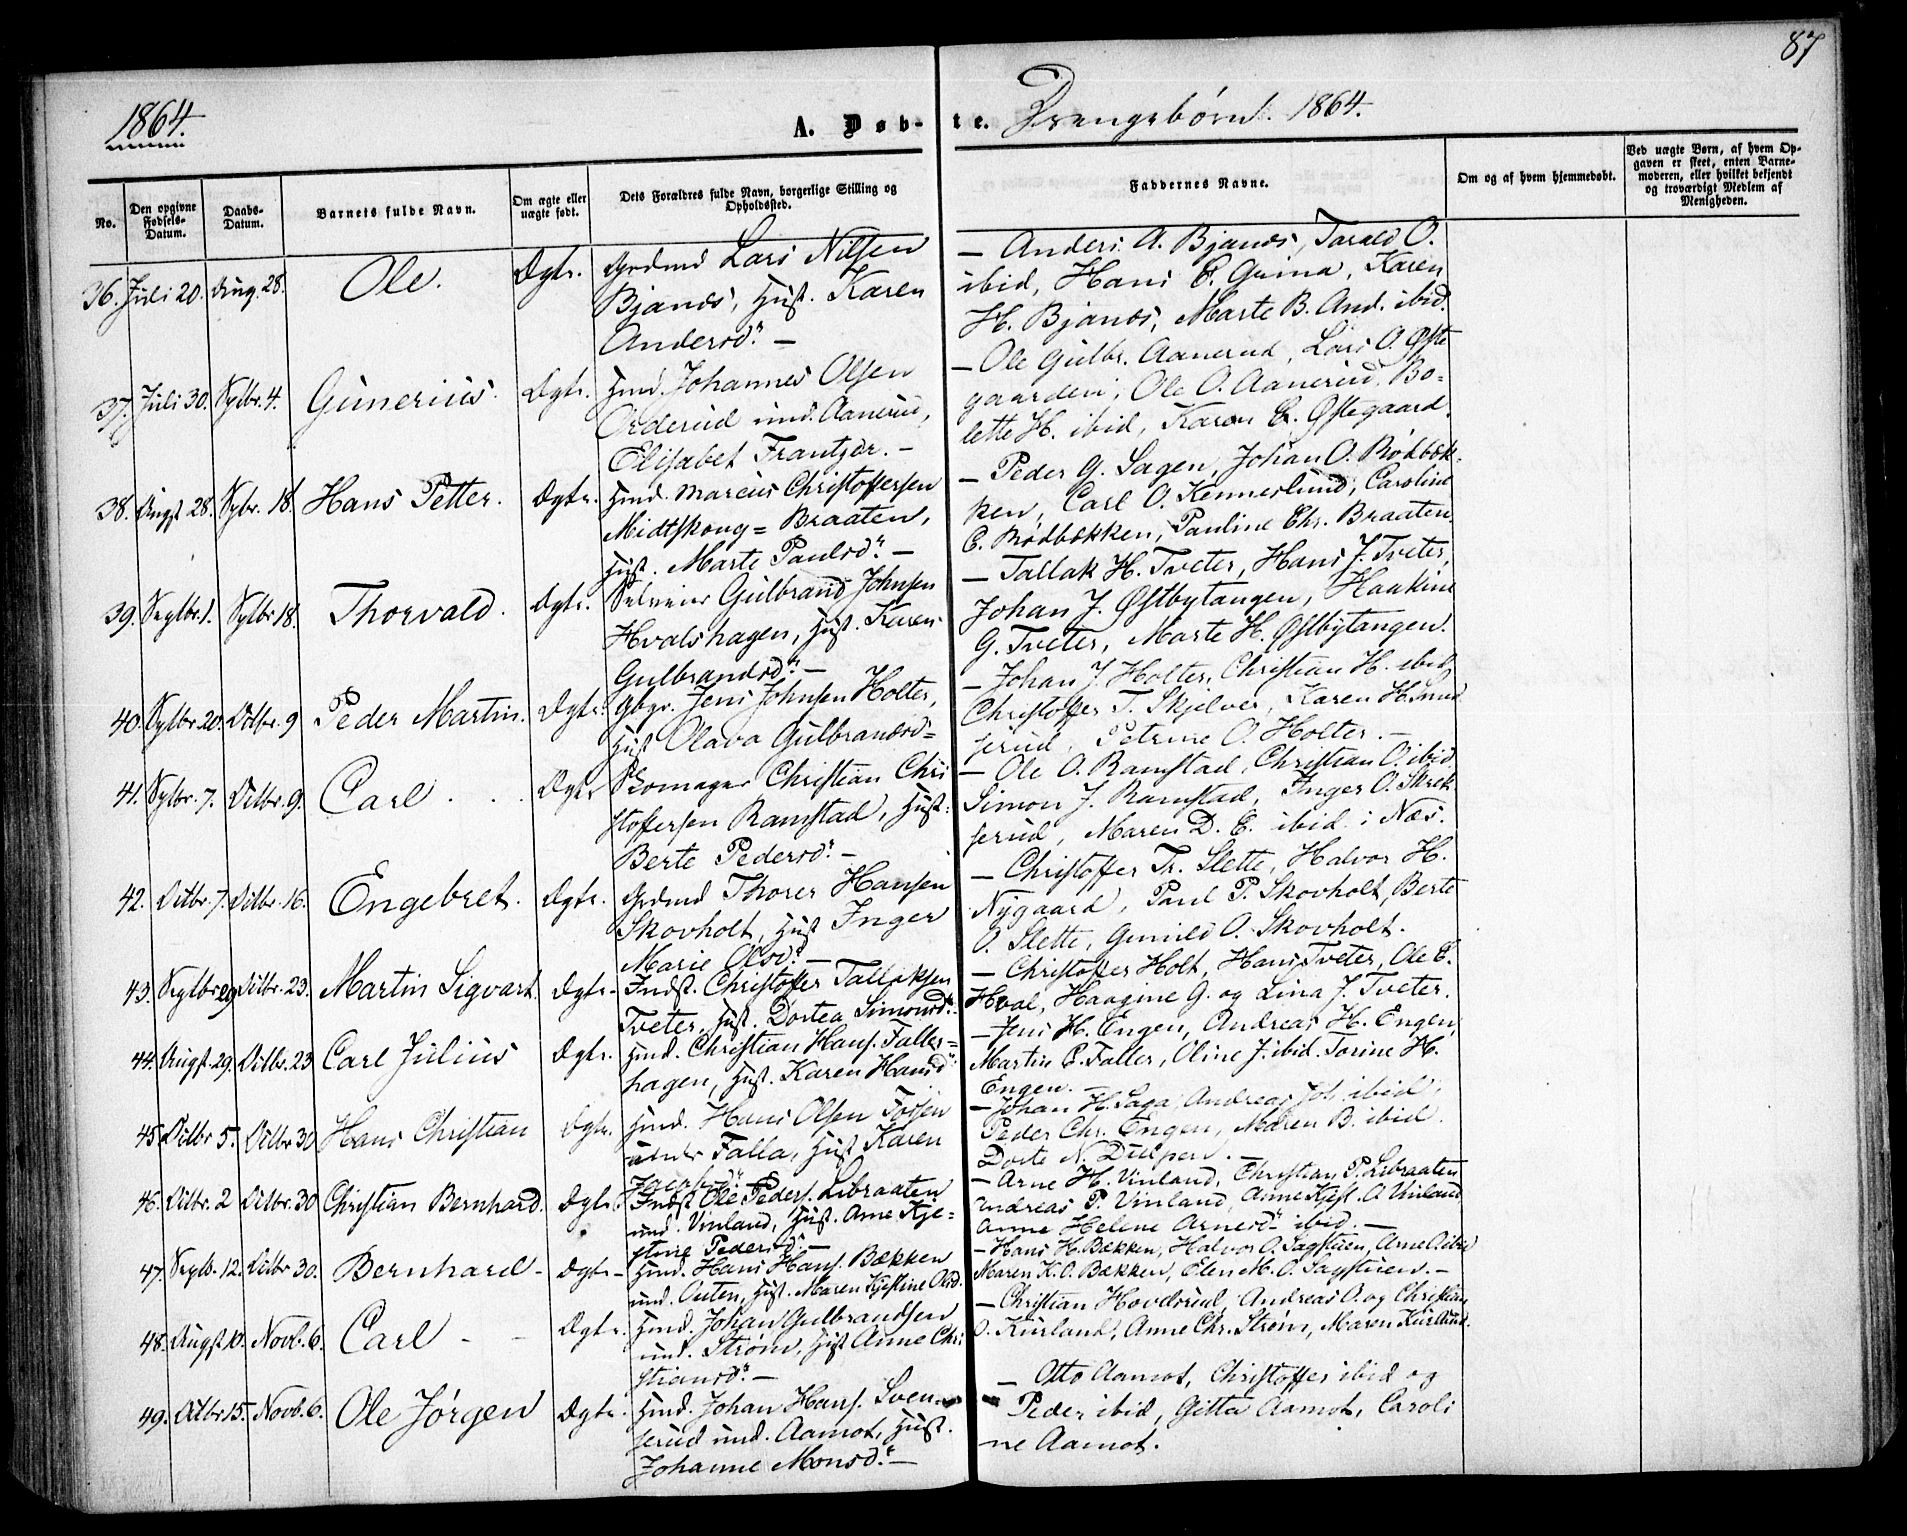 87
1864.
A. Døb-
te. Drengebørn. 1864.
No.
Den opgivne Fødsels-Datum.
Daabs-Datum.
Barnets fulde Navn.
Om ægte eller uægte født.
Dets Forældres fulde Navn, borgerlige Stilling og Opholdssted.
Faddernes Navne.
Om og af hvem hjemmedøbt.
Ved uægte Børn, af hvem Opgaven er skeet, enten Barnemoderen, eller hvilket bekjendt og troværdigt Medlem af Menigheden.
36. Juli 20. Aug. 28. Ole. Ægte. Grdmd Lars Nilsen
Bjanes, Hust. Karen
Andersd. –
– Anders A. Bjanes, Tarald O.
ibid, Hans E. Guma, Karen
H. Bjanes, Marte B. And. ibid.
37. Juli 30. Sptbr. 4. Gunerius. Ægte. Hmd. Johannes Olsen
Orderud und. Aanerud,
Elisabet Frantzdr. –
– Ole Gulbr. Aanerud, Lars O. Øste
gaarden, Ole O. Aanerud, Bo-
lette H. ibid, Karen E. Østegaard.
38. Augst 28. Sptbr. 18. Hans Petter. Ægte. Hmd. Marcus Christoffersen
Midtskoug = Braaten,
Hust. Marte Paulsd. –
– Peder G. Sagen, Johan O. Rødbek-
ken, Carl O. Kennerlund, Caroline
E. Rødbækken, Pauline Chr. Braaten.
39. Septbr. 1. Sptbr 18. Thorvald. Ægte. Selveier Gulbrand Johnsen
Hvalshagen, Hust. Karen
Gulbrandsd. –
– Tallak H. Tveter, Hans J. Tveter,
Johan J. Østbytangen, Haakine
G. Tveter, Marte H. Østbytangen.
40. Sptbr. 20. Octbr. 9 Peder Martin. Ægte. Gbgr. Jens Johnsen Holter,
Hust Olava Gulbrandsd =
– Johan J. Holter, Christian H. ibid,
Christoffer T. Skjelver, Karen H.
serud, Petrine O. Holter. –
41. Sptbr. 7. Octbr. 9. Carl . . . Ægte Skomager Christian Chri
stoffersen Ramstad, Hust.
Berte Pedersd. –
– Ole O. Ramstad, Christian O. ibid
Simon J. Ramstad, Inger O. Skrek
serud, Maren D. E. ibid i Næs.
42. Octbr. 7. Octbr. 16. Engebret. Ægte. Grdmd Thorer Hansen
Skovholt, Hust Inger
Marie Olsd. –
– Christoffer Tr. Slette, Halvor H.
Nygaard, Paul P. Skovholt, Berte
O. Slette, Gunild O. Skovholt.
43. Septbr 29 Octbr. 23. Martin Sigvart. Ægte. Indst. Christoffer Tallaksen
Tveter, Hust. Dortea Simonsd.
– Christoffer Holt, Hans Tveter, Ole E.
Hval, Haagine G. og Lina J. Tveter.
44. Augst. 29. Octbr. 23 Carl Julius Ægte. Hmd. Christian Hans. Faller=
hagen, Hust. Karen Hansd
– Jens H. Engen, Andreas H. Engen,
Martin E. Faller, Oline J. ibid. Torine H.
Engen. –
45. Octbr 5. Octbr 30 Hans Christian Ægte. Hmd. Hans Olsen Fossen
under Falla, Hust Karen
Jacobsd. –
– Johan H. Saga, Andreas Joh ibid,
Peder Chr. Engen, Maren B. ibid.
Dorte N. –
46. Octbr. 2 Octbr. 30 Christian Bernhard. Ægte. Indst Ole Peders. Libraaten
und. Vinland, Hust. Anne Kje=
stine Pedersd. –
– Arne H. Vinland, Christian P. Libraaten
Andreas P. Vinland, Anne Kjest. A. Vinland,
Anne Helene Arnesd. ibid. –
47. Septb. 12. Octbr 30. Bernhard – Ægte – Hmd. Hans Hans. Bækken
und. Outen, Hust. Maren Kjestine Olsd
– Hans H. Bækken, Halvor O. Sagstuen, Arne O. ibid
Maren K. O. Bækken, Elen M. O. Sagstuen. –
48. Augst 10. Novb. 6. Carl – – Ægte. Hmd. Johan Gulbrandsen
und. Strøm, Hust Anne Chri
stiansd. –
– Christian Hovelsrud, Andreas O. og Christian
O. Kurland, Anne Chr. Strøm, Maren Kurland.
49. Octbr 15. Novb. 6. Ole Jørgen Ægte. Hmd. Johan Hans. Sven-
serud und. Aamot, Hust.
Johanne Monsd. –
– Otto Aamot, Christoffer ibid og
– Peder ibid, Gitta Aamot, Caroli
ne Aamot.